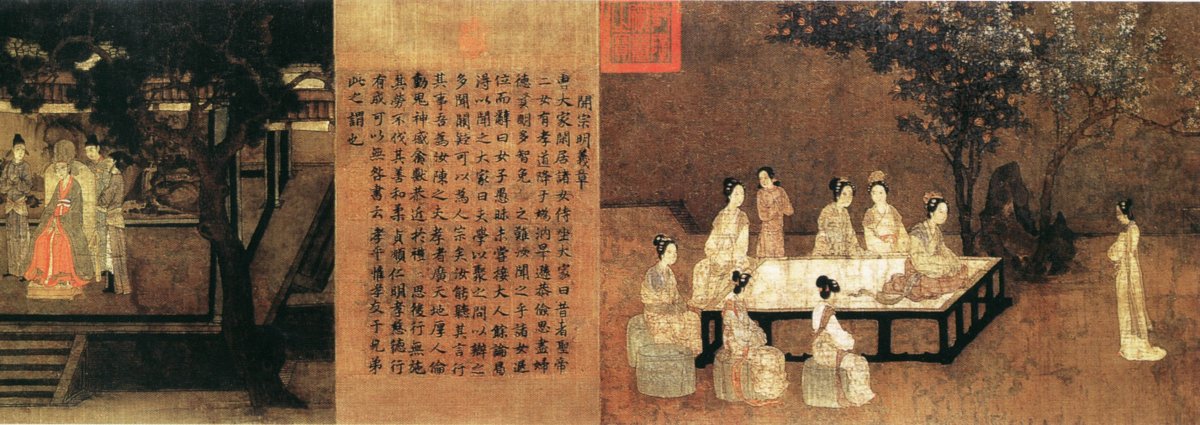 開宗明義章
曹大家閒居諸女侍坐大家曰昔者聖帝
二女有孝道降于媯汭卑遜恭儉思盡婦
德賢明多智免之難汝聞之乎諸女退
位而辭曰女子愚昧未嘗接大人餘論曷
得以聞之大家曰夫學以聚之問以辯之
多聞闕疑可以為人宗矣汝能聽其言行
其事吾為汝陳之夫孝者廣天地厚人倫
動鬼神感禽獸恭近於禮思後行無施
其勞不伐其善和柔貞順仁明孝慈德行
有成可以無咎書云孝乎惟孝友于兄弟
此之謂也